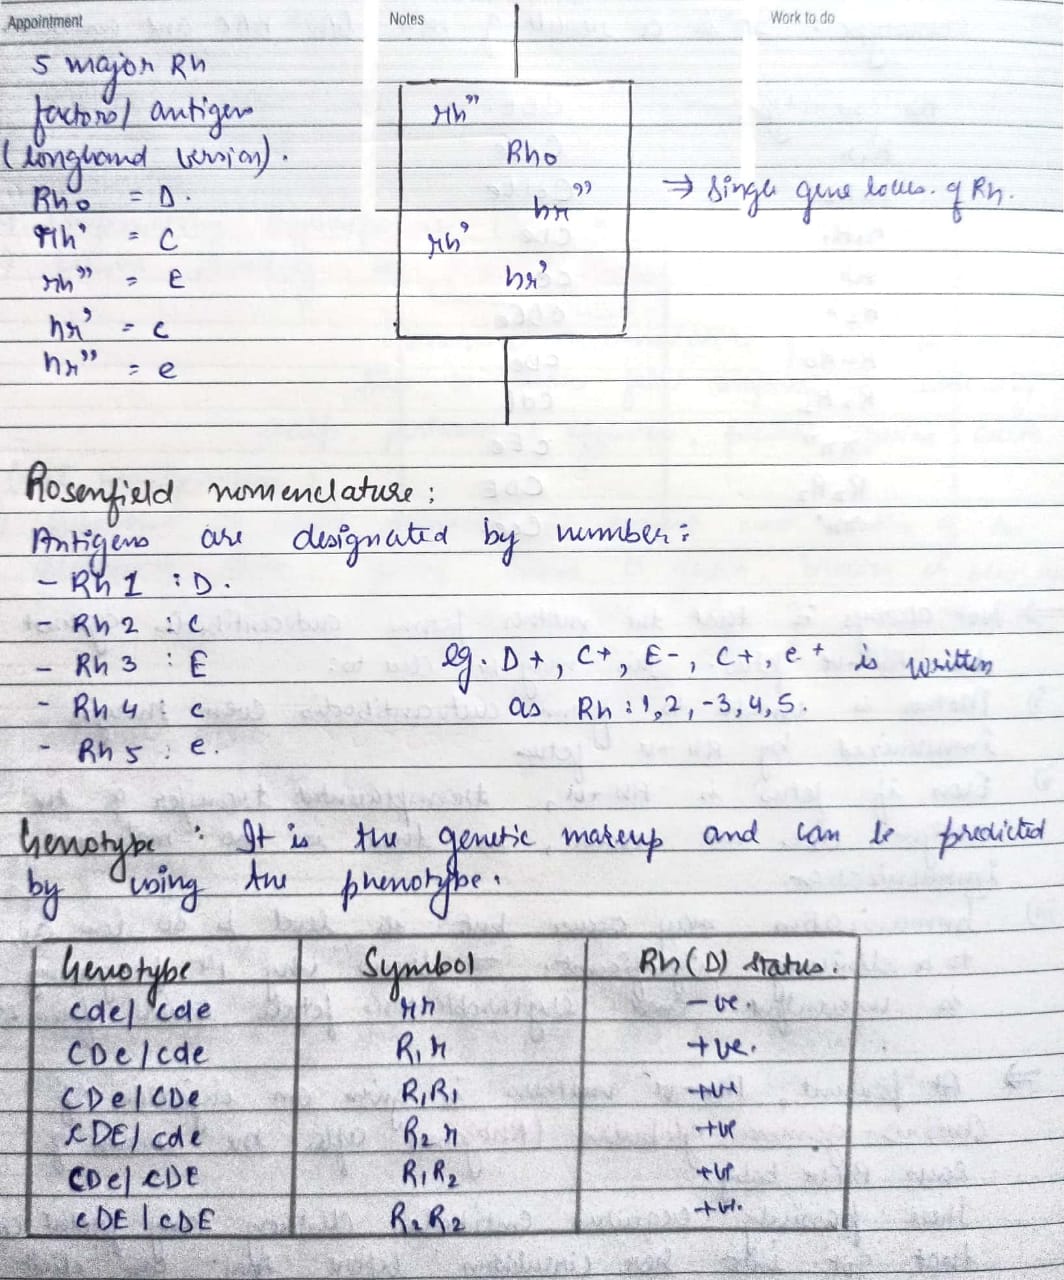 Appointment
Notes
Work to do
5 major Rh
factors/ antigens
(longhand version).
Rho = D.
rh' = C
rh" = E
hr' = c
hr" = e
rh"
Rho
hr"
rh'
hr'
⇒ Single gene locus. of Rh.
Rosenfield nomenclature:
Antigens are designated by number:
- Rh 1 : D.
- Rh 2 : C
- Rh 3 : E
- Rh 4 c
- Rh 5 : e.
eg. D+, C+, E-, C+, e+ is written
as Rh : 1,2, -3,4,5.
Genotype : It is the genetic makeup and can be predicted
by using the phenotype.
Genotype Symbol Rh (D) status.
cde/ cde rr -ve.
CDe/cde R1r +ve.
CDe/CDe R1R1 +ve
cDE/ cde R2r +ve
CDe/ cDE R1R2 +ve
cDE / cDE R2R2 +ve.